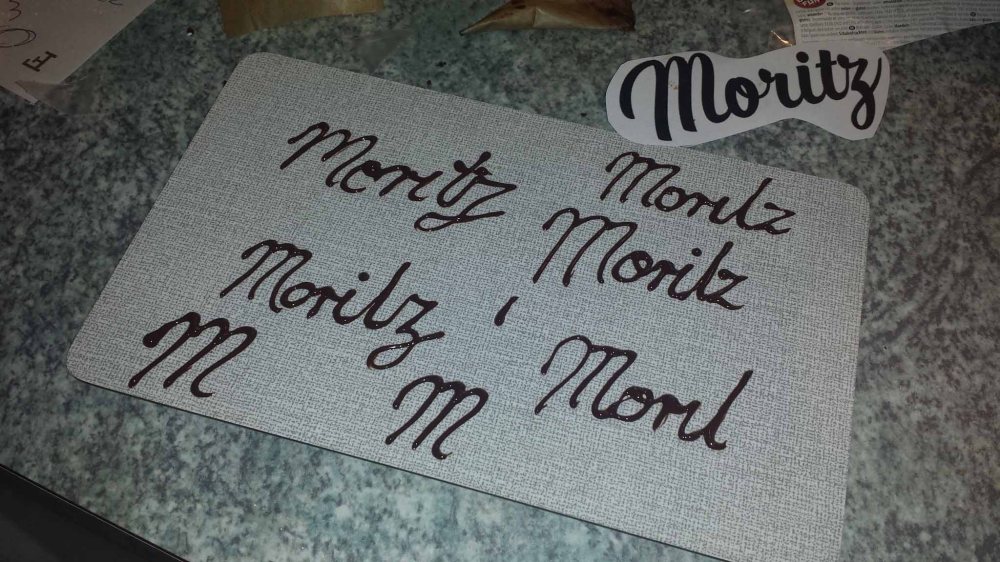 Moritz
Moritz
Moritz
Moritz
Moritz
M
M
Morit
E